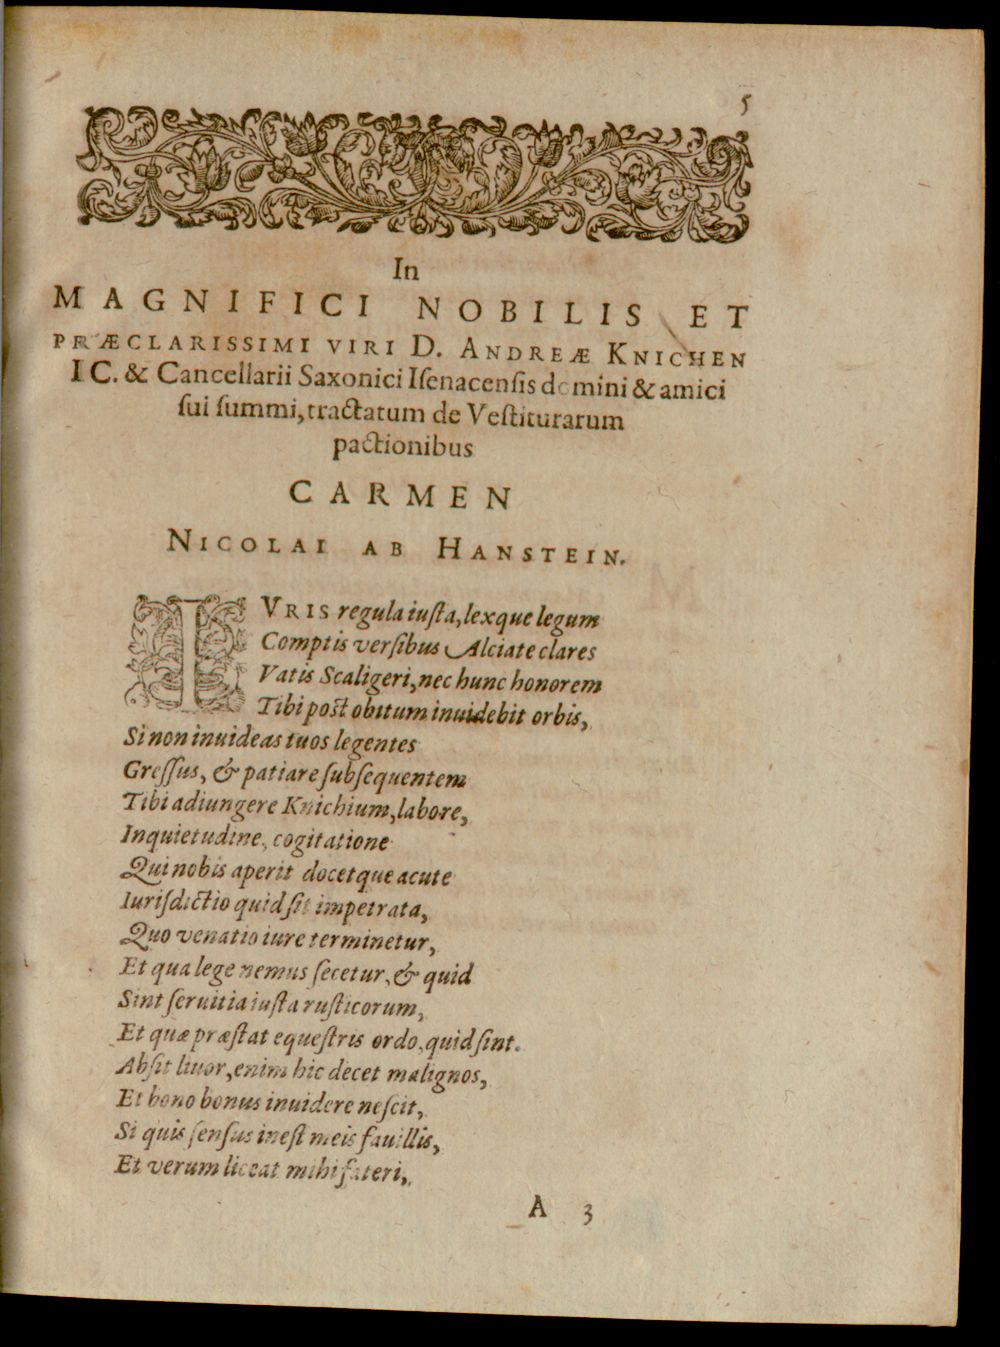 5
In
MAGNIFICI NOBILIS ET
PRÆCLARISSIMI VIRI D. ANDREÆ KNICHEN
IC. & Cancellarii Saxonici Iſenacenſis domini & amici
ſui ſummi, tractatum de Veſtiturarum
pactionibus
CARMEN
NICOLAI AB HANSTEIN.
IVRIS regula iuſta, lexque legum
Comptis verſibus Alciate clares
Vatis Scaligeri, nec hunc honorem
Tibi poſt obitum inuidebit orbis,
Si non inuideas tuos legentes
Greſſus, & patiare ſubſequentem
Tibi adiungere Knichium, labore,
Inquietudine, cogitatione
Qui nobis aperit docetque acute
Iuriſdictio quid ſit impetrata,
Quo venatio iure terminetur,
Et qua lege nemus ſecetur, & quid
Sint ſeruitia iuſta ruſticorum,
Et quæ præſtat equeſtris ordo, quid ſint.
Abſit liuor, enim hic decet malignos,
Et bono bonus inuidere neſcit,
Si quis ſenſus ineſt meis fauillis,
Et verum liceat mihi fateri,
A 3